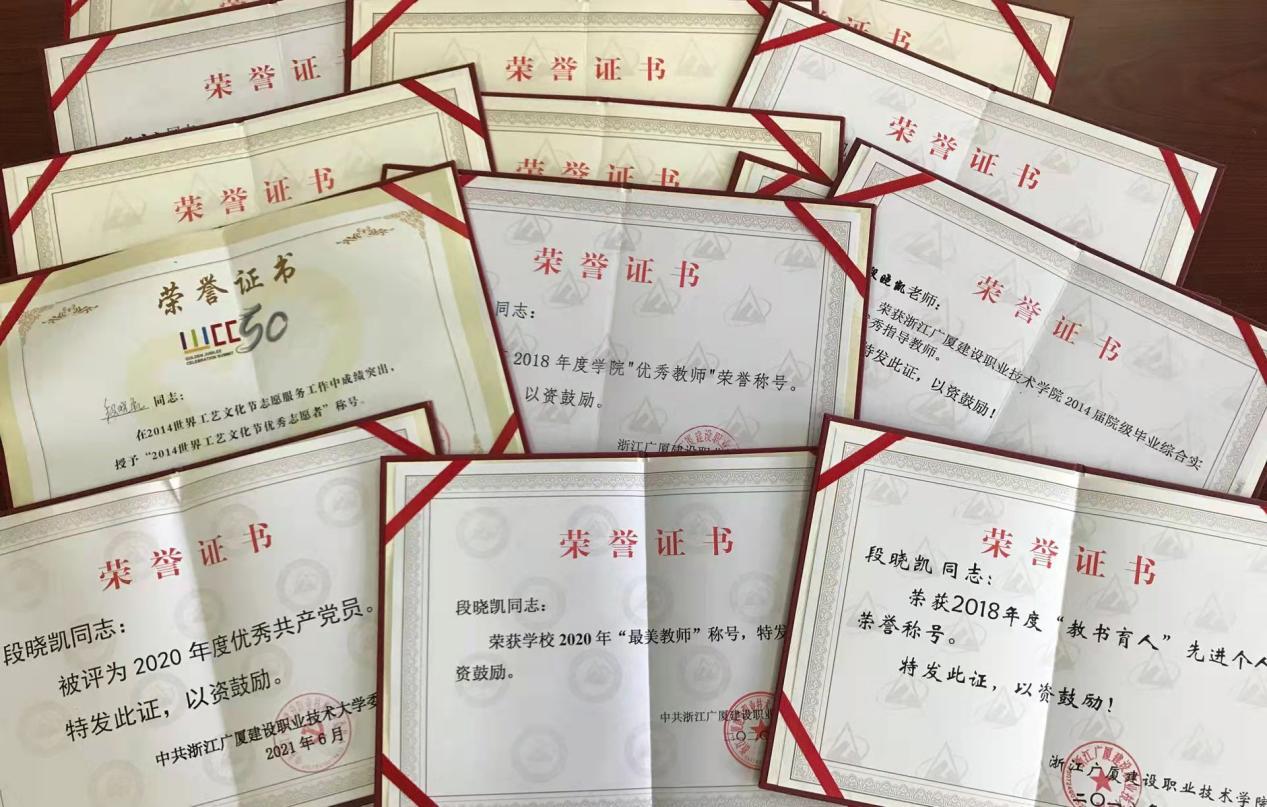 荣誉证
荣誉证书
荣誉证书
荣誉证书
荣誉证书
荣誉证书
荣誉证书
IIIICC50
GOLDEN JUBILEE
CELEBRATION SUMMIT
段晓凯 同志:
在2014世界工艺文化节志愿服务工作中成绩突出,
授予“2014世界工艺文化节优秀志愿者”称号。
荣誉证书
同志:
2018 年度学院"优秀教师"荣誉称号。
以资鼓励。
浙江广厦建设职
荣誉证书
段晓凯老师:
荣获浙江广厦建设职业技术学院 2014届院级毕业综合实
秀指导教师。
特发此证, 以资鼓励!
荣誉证书
段晓凯同志:
被评为 2020 年度优秀共产党员。
特发此证, 以资鼓励。
中共浙江广厦建设职业技术大学委
2021 年 6 月
荣誉证书
段晓凯同志:
荣获学校 2020 年“最美教师”称号, 特发
资鼓励。
中共浙江广厦建设职
二〇二〇
荣誉证书
段晓凯 同志:
荣获2018年度“教书育人”先进个人
荣誉称号。
特发此证, 以资鼓励!
浙江广厦建设职业技术学院
二〇一